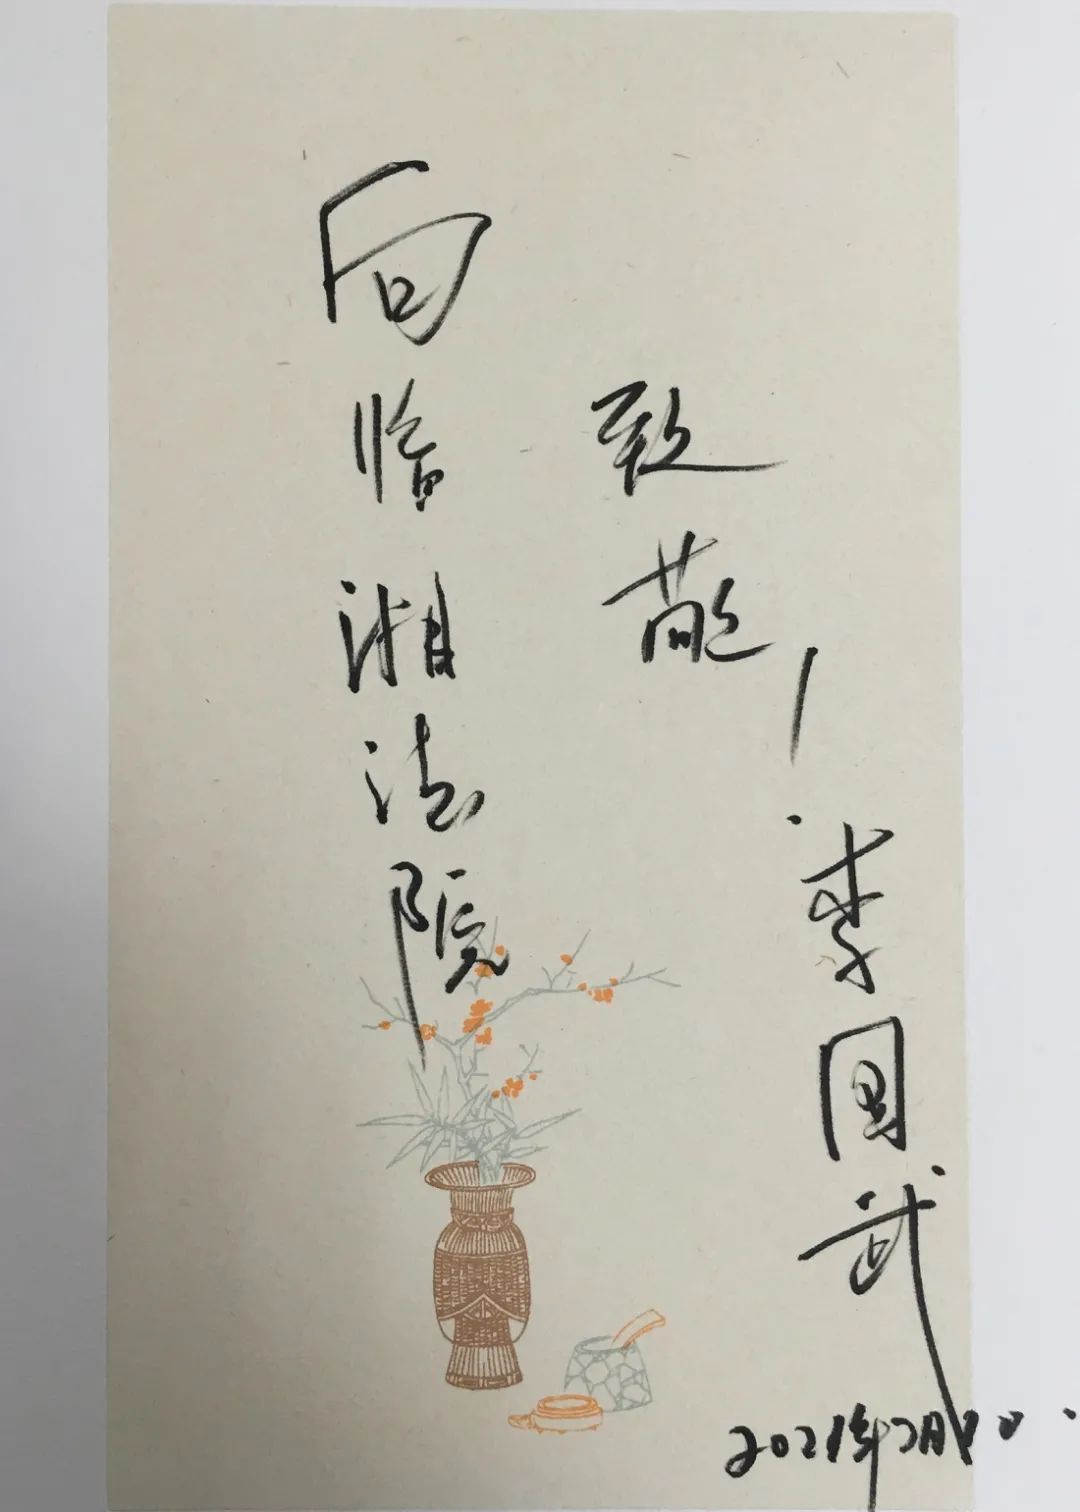 向临湘法院
致敬！
李国武
2021年